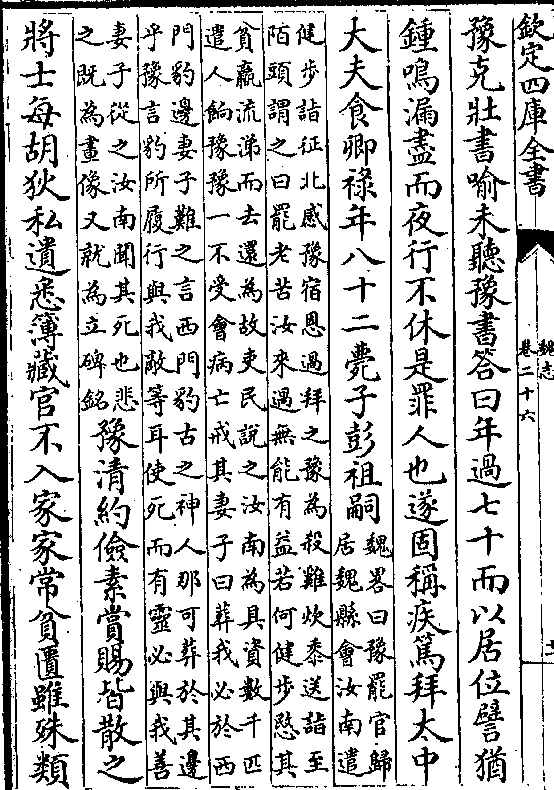 欽定四庫全書
魏志
卷二十六
豫克壯書喻未聽豫書答曰年過七十而以居位譬猶
鍾鳴漏盡而夜行不休是罪人也遂固稱疾篤拜太中
大夫食卿祿年八十二薨子彭祖嗣
魏畧曰豫罷官歸
居魏縣會汝南遣
健步詣征北感豫宿恩過拜之豫為殺雞炊黍送詣至
陌頭謂之曰罷老苦汝來過無能有益若何健步愍其
貧羸流涕而去還為故吏民說之汝南為具資數千匹
遣人餉豫豫一不受會病亡戒其妻子曰葬我必於西
門豹邊妻子難之言西門豹古之神人那可葬於其邊
乎豫言豹所履行與我敵等耳使死而有靈必與我善
妻子從之汝南聞其死也悲
之既為畫像又就為立碑銘
豫清約儉素賞賜皆散之
將士每胡狄私遺悉簿藏官不入家家常貧匱雖殊類